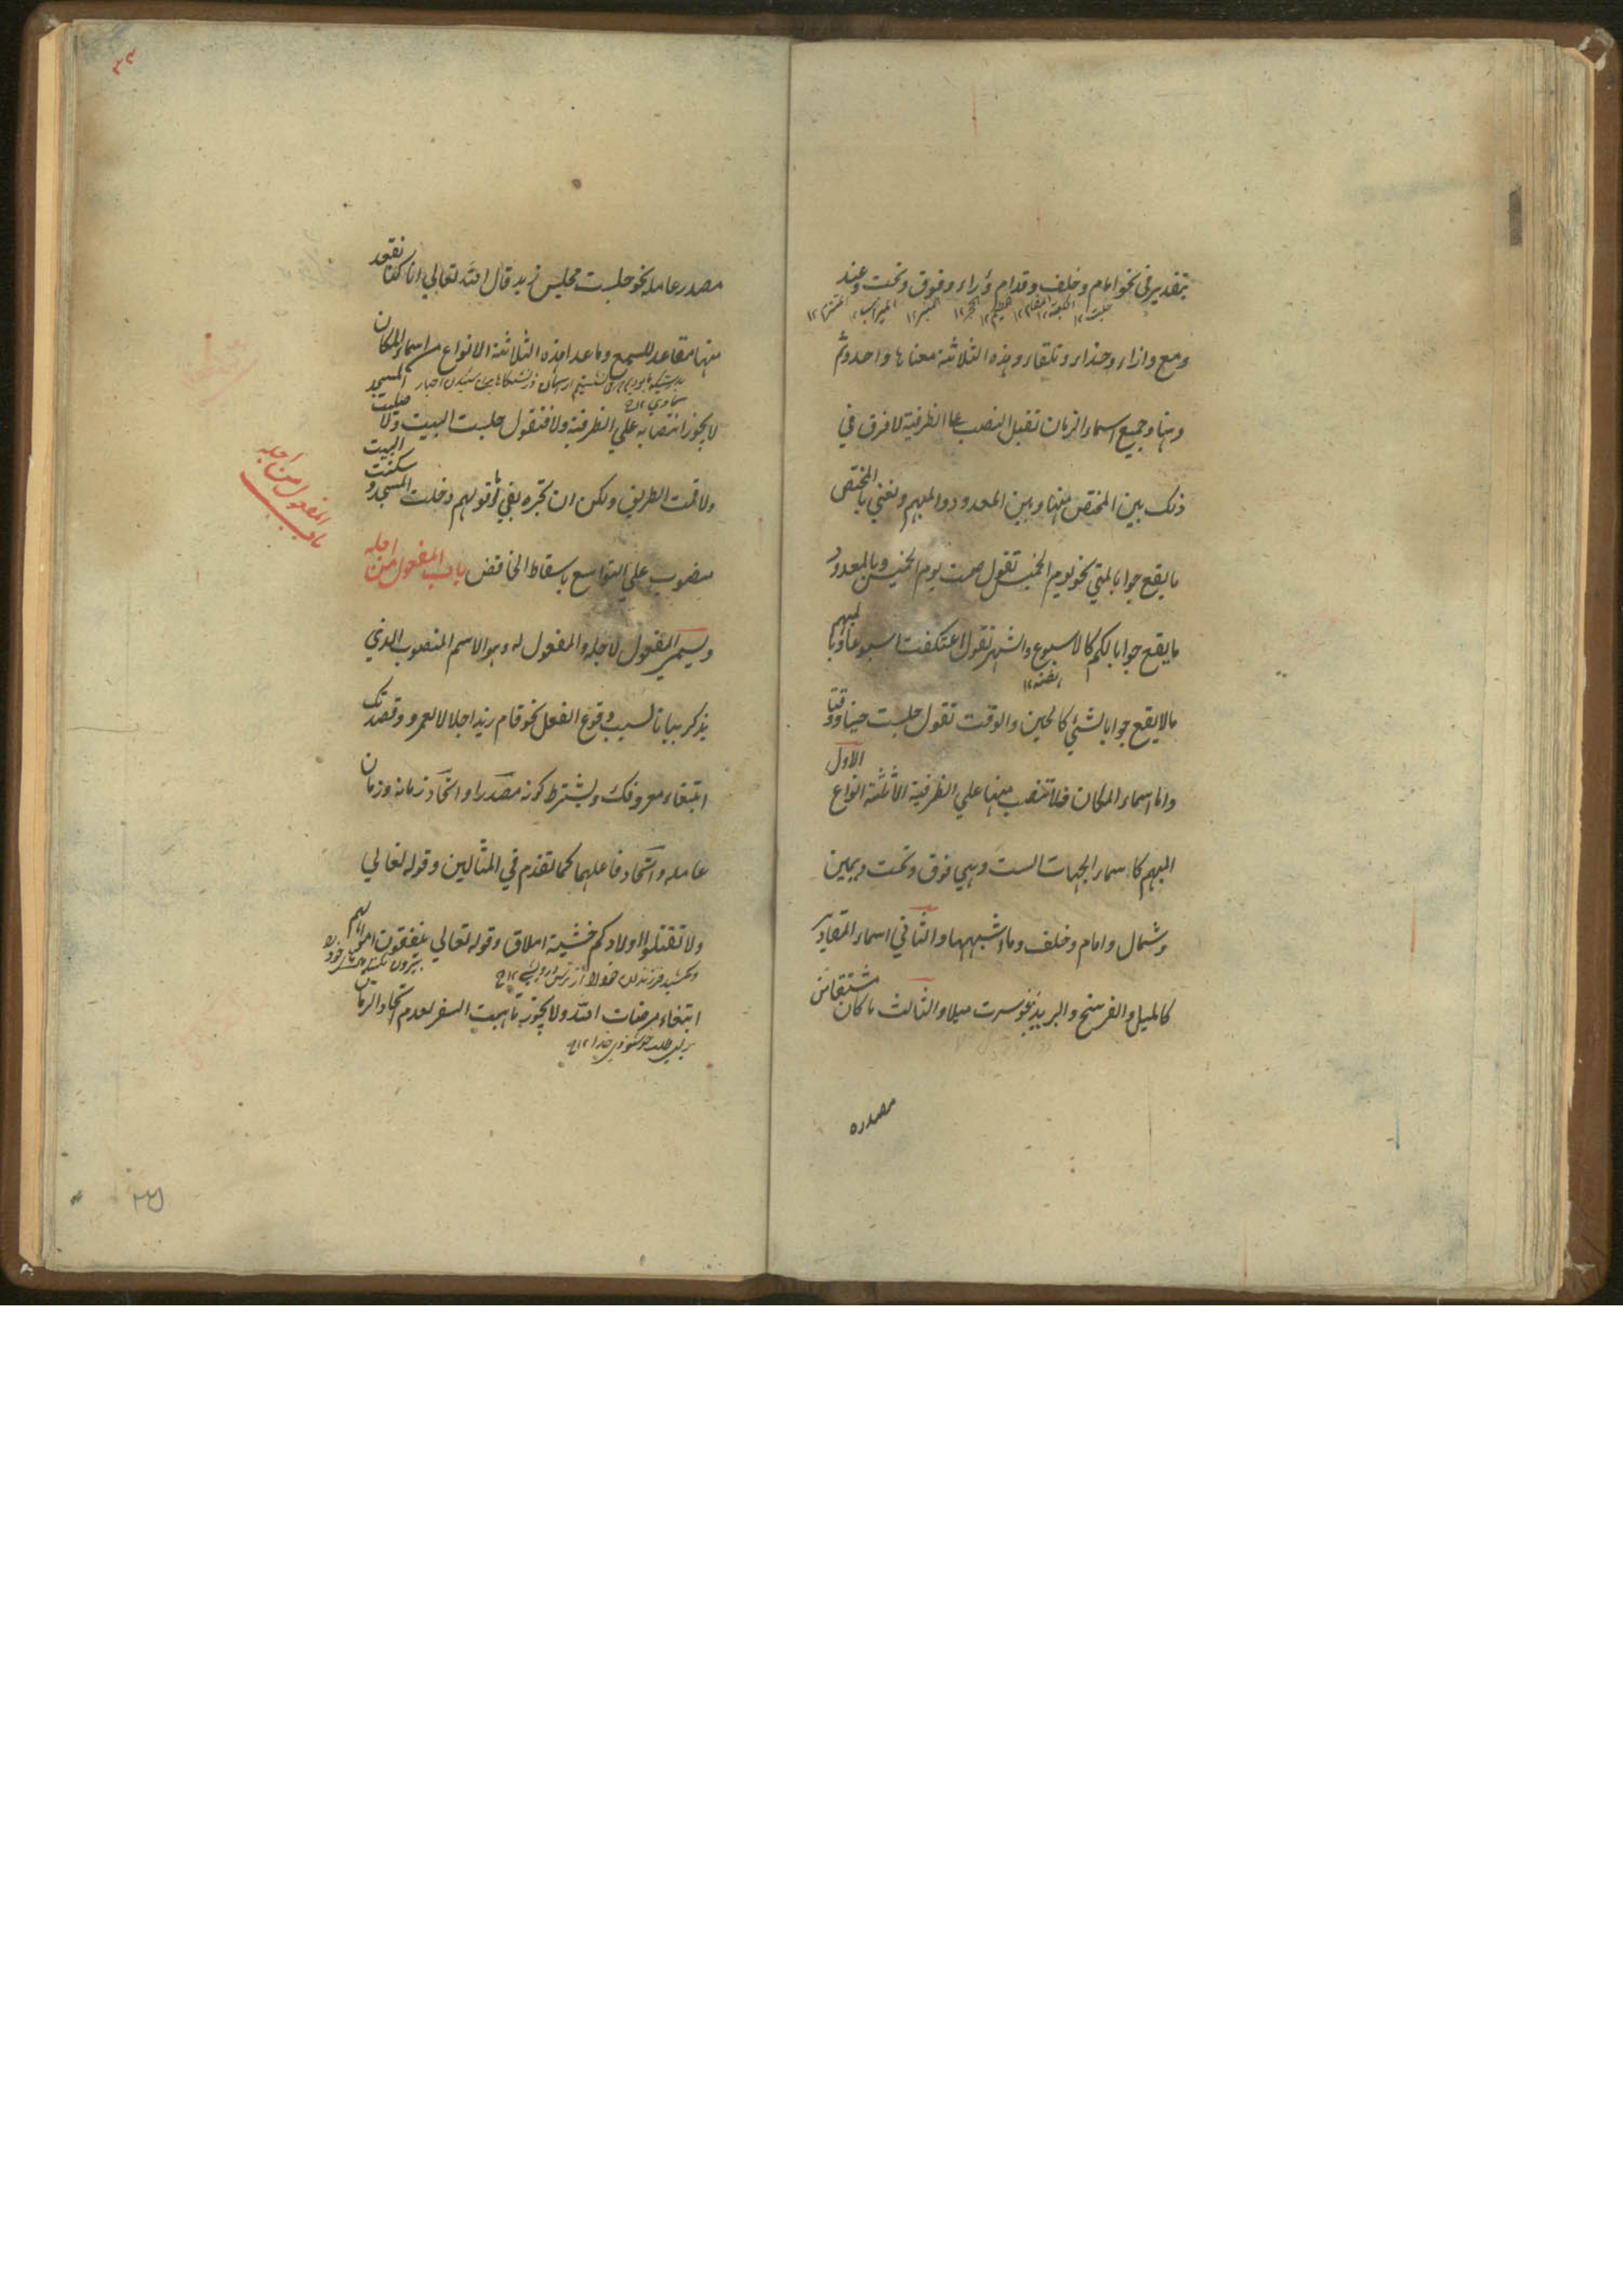 بتقدير في نحو امام وخلف وقدام ووراء وفوق وتحت وعند
جلست ١٢ الكعبة ١٢ المقام ١٢ الحطيم ١٢ الحجر ١٢ المنبر ١٢ الميزاب ١٢
ومع وازاء وحذاء وتلقاء وهذه الثلاثة معناها واحد وثم
وهنا وجميع اسماء الزمان تقبل النصب على الظرفية لا فرق في
ذلك بين المختص منها وبين المعدود والمبهم ونعني بالمختص
ما يقع جوابا لمتي نحو يوم الخميس تقول صمت يوم الخميس وبالمعدود
ما يقع جوابا لكم كالاسبوع والشهر تقول اعتكفت اسبوعا وبالمبهم
مالا يقع جوابا لشئي كالحين والوقت تقول جلست حينا ووقتا
واما اسماء المكان فلا تنصب منها علي الظرفية الا ثلثة انواع الاول
المبهم كاسماء الجهات الست وهي فوق وتحت ويمين
وشمال وامام وخلف وما اشبهها والثاني اسماء المقادير
كالميل والفرسخ والبريد نحو سرت ميلا والثالث ما كان مشتقا من
مصدره
٣٤
مصدر عامله نحو جلست مجلس زيد قال الله تعالي انا كنا نقعد
منها مقاعد للسمع وما عدا هذه الثلاثة الانواع من اسماء المكان
لا يجوز انتصابه علي الظرفية ولا فتقول جلست البيت ولا صليت المسجد
ولا قمت الطريق ولكن ان تجره بفي واما قولهم دخلت المسجد وسكنت البيت
منصوب علي التواسع باسقاط الخافض باب المفعول من اجله
باب المفعول من اجله
ويسمى المفعول لاجله والمفعول له وهو الاسم المنصوب الذي
يذكر بيانا لسبب وقوع الفعل نحو قام زيد اجلالا لعمرو وقصدتك
ابتغاء معروفك ويشترط كونه مصدرا واتحاد زمانه وزمان
عامله واتحاد فاعلهما كما تقدم في المثالين وقوله تعالي
ولا تقتلوا اولادكم خشية املاق وقوله تعالي ينفقون اموالهم
ابتغاء مرضات الله ولا يجوز تاهبت السفر لعدم اتحاد الزمان
براي طلب خوشنودي خدا ١٢